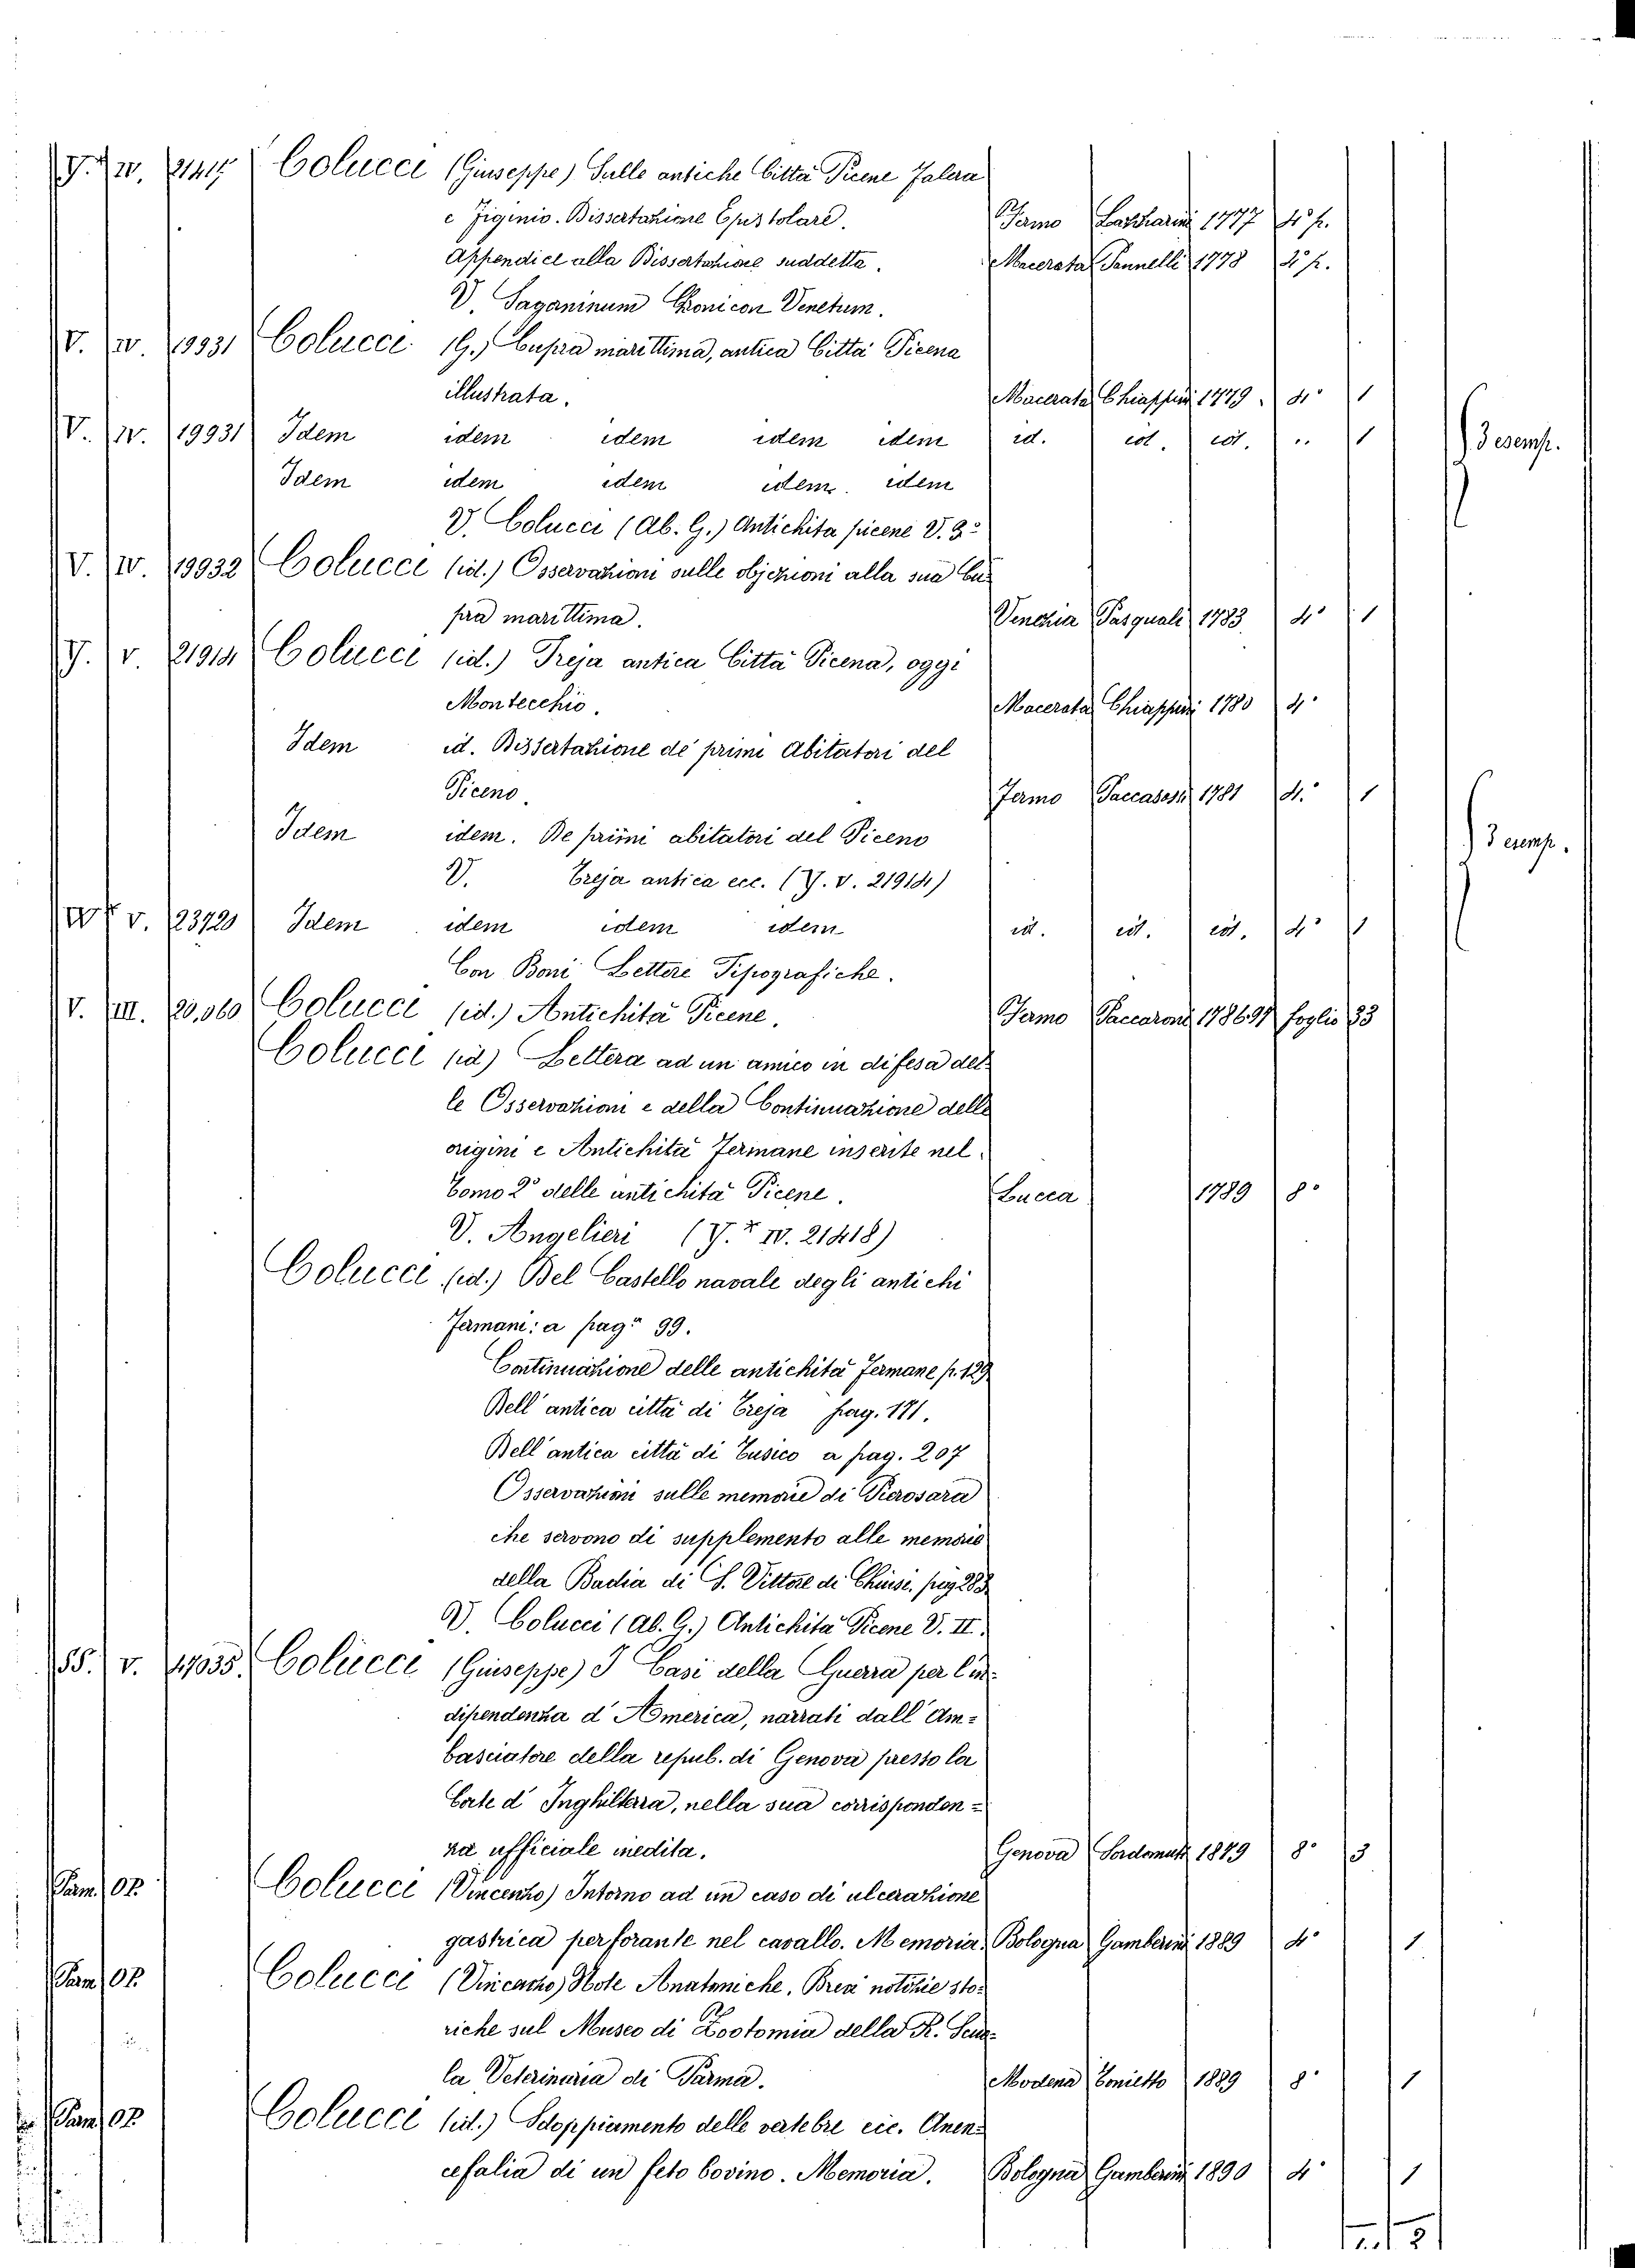 Y.+ IV. 21417 Colucci (Giuseppe) Sulle antiche Città Picene Falera
e Figinio. Dissertazione Epistolare. Fermo Lazzarini 1777 4° p.
Appendice alla Dissertazione suddetta. Macerata Pannelli 1778 4° p.
V. Zaganinum Chronicon Venetum.
V. IV. 19931 Colucci (G.) Cupra marittima, antica Città Picena
illustrata. Macerata Chiappini 1779. 4° 1
V. IV. 19931 Idem idem idem idem idem id. id. id. .. 1 3 esemp.
Idem idem idem idem. idem
V. Colucci (Ab. G.) Antichita picene V. 3°
V. IV. 19932 Colucci (id.) Osservazioni sulle objezioni alla sua Cu=
pra marittima. Venezia Pasquali 1783 4° 1
Y. V 21914 Colucci (id.) Treja antica Città Picena, oggi
Montecchio. Macerata Chiappini 1780 4°
Idem id. Dissertazione de' primi Abitatori del
Piceno. Fermo Paccasassi 1781 4.° 1
Idem idem. De primi abitatori del Piceno 3 esemp.
V. Treja antica ecc. (Y. V. 21914)
V. 23720 Idem idem idem idem id. id. id. 4° 1
Con Boni Lettere Tipografiche.
V. III. 20,060 Colucci (id.) Antichità Picene. Fermo Paccaroni 1786.97 foglio 33
Colucci (id) Lettera ad un amico in difesa del=
le Osservazioni e della Continuazione delle
origini e Antichità Fermane inserite nel
Tomo 2° delle antichità Picene. Lucca 1789 8°
V. Angelieri (Y.+ IV. 21418)
Colucci (id.) Del Castello navale degli antichi
Fermani: a pag.ª 99.
Continuazione delle antichità Fermane p. 129
Dell'antica città di Treja pag. 171.
Dell'antica città di Tusico a pag. 207
Osservazioni sulle memorie di Pierosara
che servono di supplemento alle memorie
della Badia di S. Vittore di Chiusi. pag 283
V. Colucci (Ab. G.) Antichità Picene V. II.
SS. V. 47035. Colucci (Giuseppe) I Casi della Guerra per l'in=
dipendenza d'America, narrati dall'Am=
basciatore della repub. di Genova presso la
Corte d'Inghilterra, nella sua corrisponden=
za ufficiale inedita. Genova Sordomuti 1879 8° 3
Pam. Op. Colucci (Vincenzo) Intorno ad un caso di ulcerazione
gastrica perforante nel cavallo. Memoria. Bologna Gamberini 1889 4° 1
Pam. Op. Colucci (Vincenzo) Note Anatomiche. Brevi notizie sto=
riche sul Museo di Zootomia della R. Scuo=
la Veterinaria di Parma. Modena Tonietto 1889 8° 1
Pam. Op. Colucci (id.) Sdoppiamento delle vertebre ecc. Anen=
cefalia di un feto bovino. Memoria. Bologna Gamberini 1890 4° 1